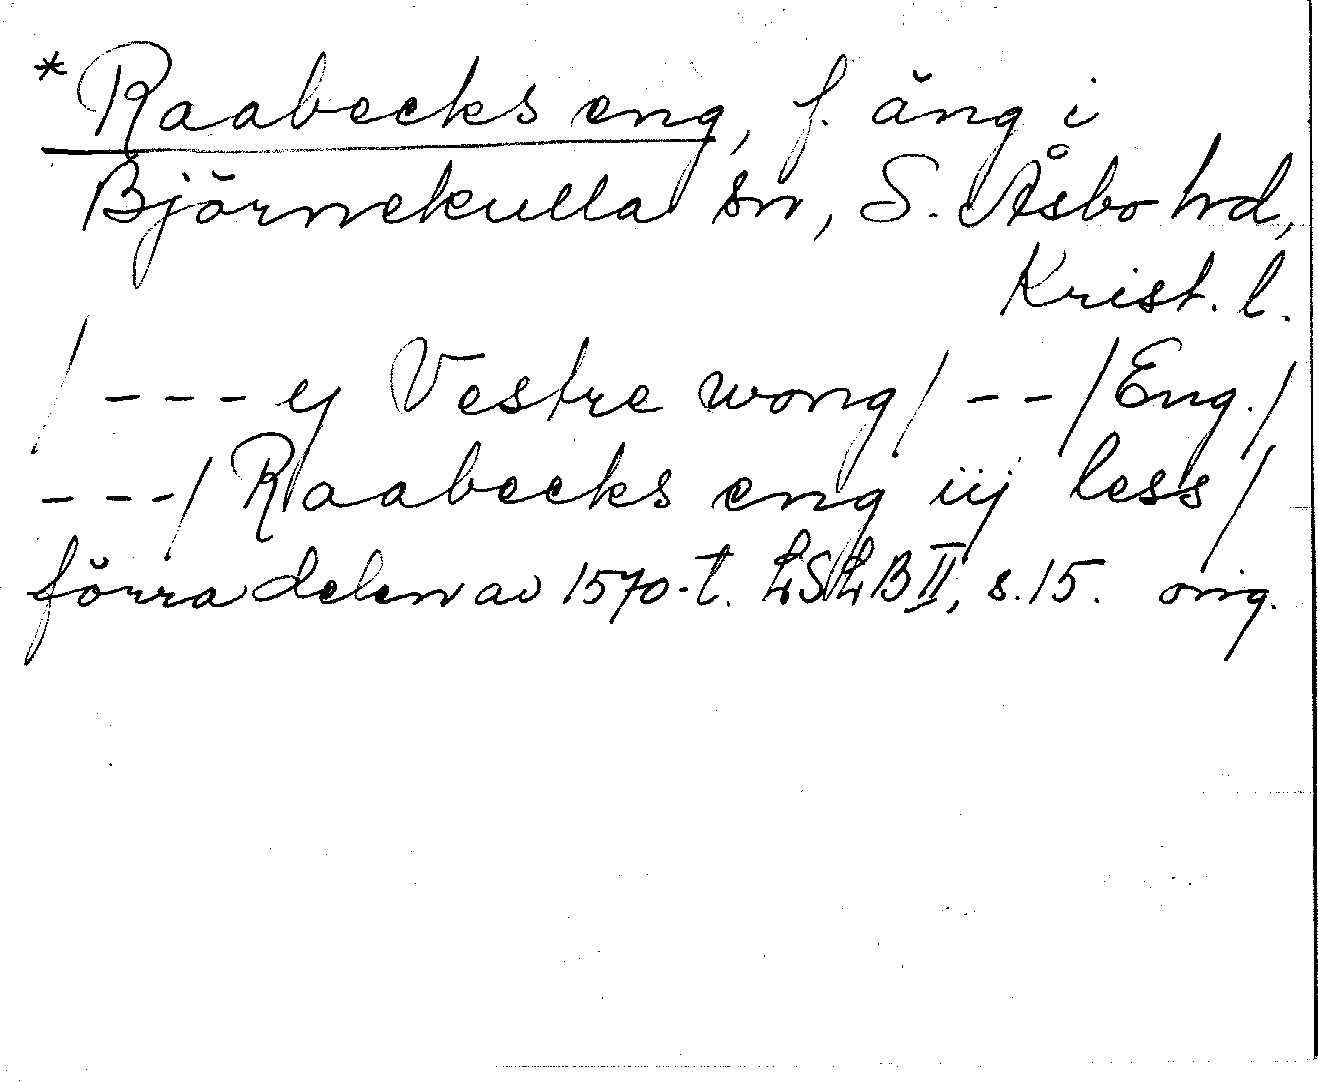 *Raabecks eng, f. äng i
Björnekulla sn, S. Åsbo hd,
Krist. l.
/ --- ej Vestre wong / -- / Eng. /
--- / Raabecks eng iij less /
förra delen av 1570-t. LSLB II, s. 15. orig.